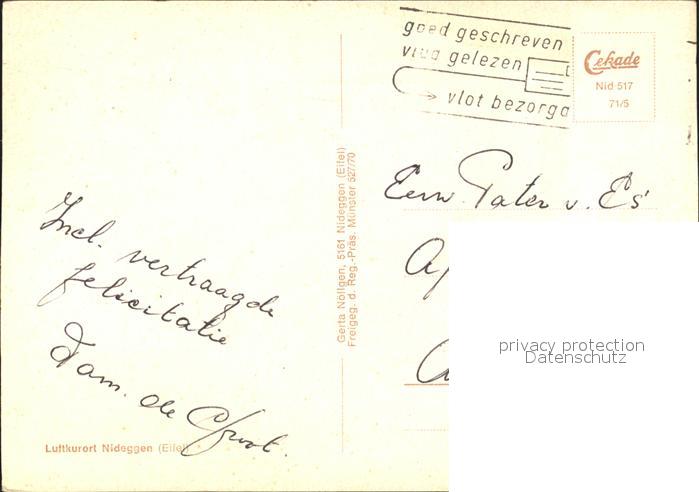 goed geschreven
vlug gelezen
vlot bezorgd
Cekade
Nid 517
71/5
Eerw. Pater v. Es
Incl. vertraagde
felicitatie
Fam. de Groot.
Gerta Nöltgen, 5161 Nideggen (Eifel)
Freigeg. d. Reg.-Präs. Münster 527/70
privacy protection
Datenschutz
Luftkurort Nideggen (Eifel)